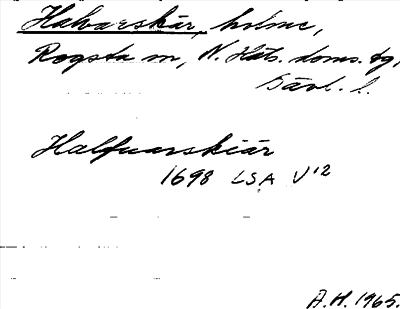 Halvarskär, holme,
Rogsta sn, N. Häls. doms. tg,
Gävl. l.
Halfuarskiär
1698 LSA V 12
A.H. 1965.